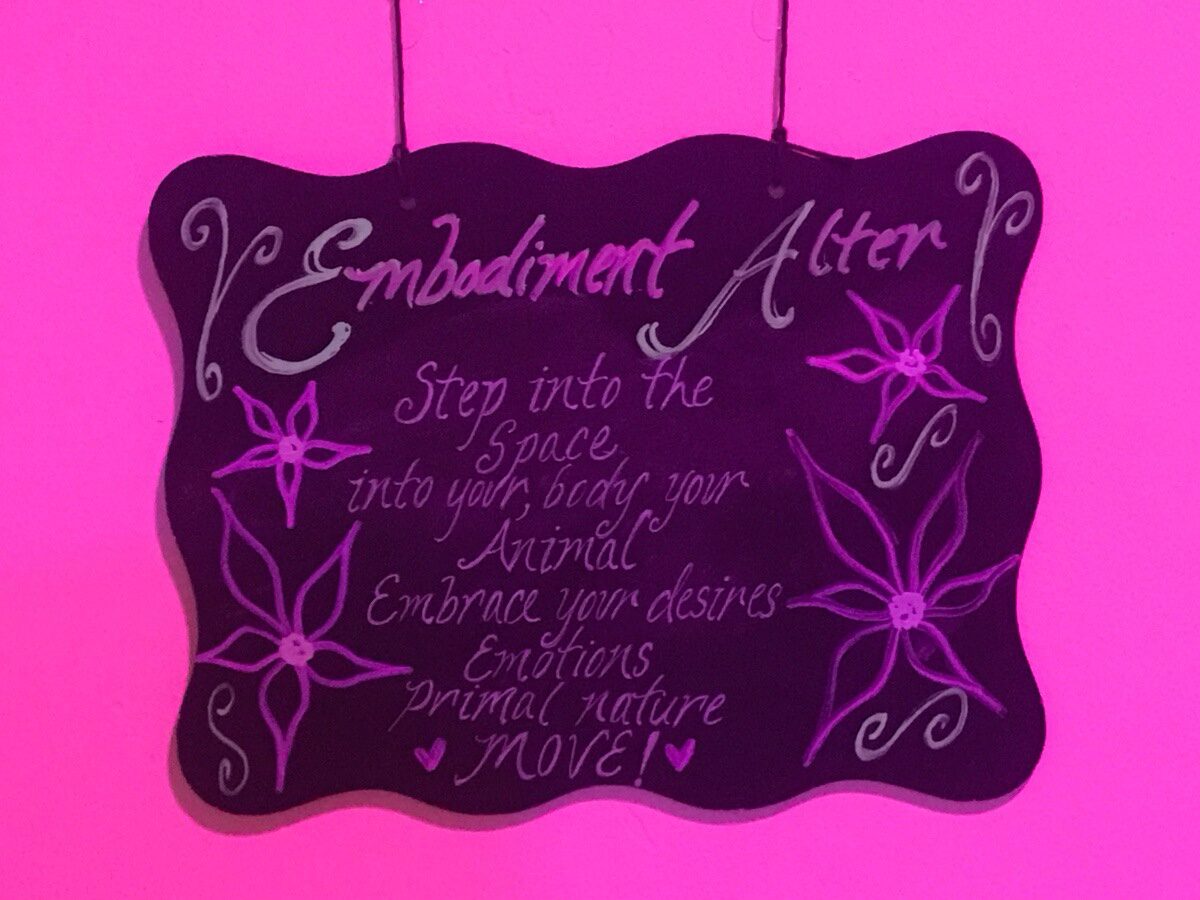 Embodiment Alter
Step into the
Space
into your, body your
Animal
Embrace your desires
Emotions
Primal nature
MOVE!